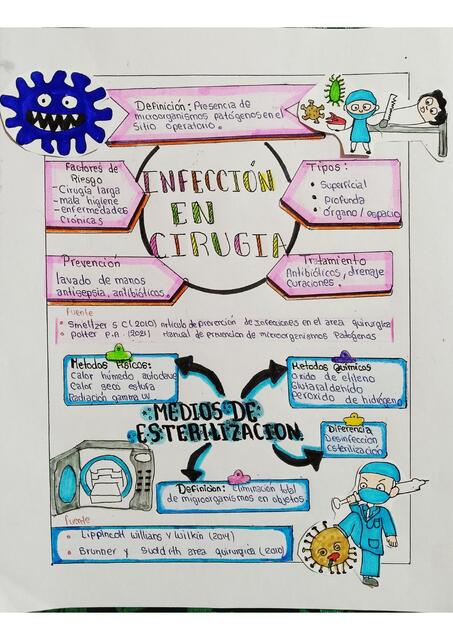 Definición: Presencia de
microorganismos patógenos en el
Sitio operatorio.
Factores de
Riesgo
- Cirugía larga
- mala higiene
- enfermedades
Crónicas
INFECCIÓN
EN
CIRUGIA
Tipos:
• Superficial
• Profunda
• Órgano/espacio
Prevención
lavado de manos
antisepsia, antibióticos.
Tratamiento
Antibióticos, drenaje
curaciones.
Fuente
• Smeltzer S C (2010) Artículo de prevención de infecciones en el area quirurgica
• Potter P.A. (2021) Manual de prevencion de microorganismos Patogenos
Metodos Físicos:
Calor húmedo autoclave
Calor seco estufa
Radiación gamma uv
Metodos Químicos
Oxido de etileno
Glutaraldehido
Peroxido de hidrógeno
MEDIOS DE
ESTERILIZACION
Diferencia
Desinfección
Esterilización
Definición: Eliminación total
de microorganismos en objetos.
Fuente
• Lippincott Willians y Wilkin (2014)
• Brunner y Suddrth area quirurgica (2010)